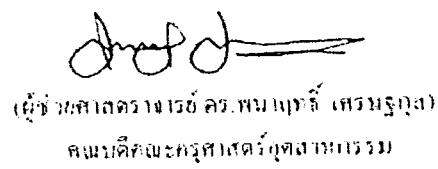 (ผู้ช่วยศาสตราจารย์ ดร.พนาฤทธิ์ เศรษฐกุล)
คณบดีคณะครุศาสตร์อุตสาหกรรม